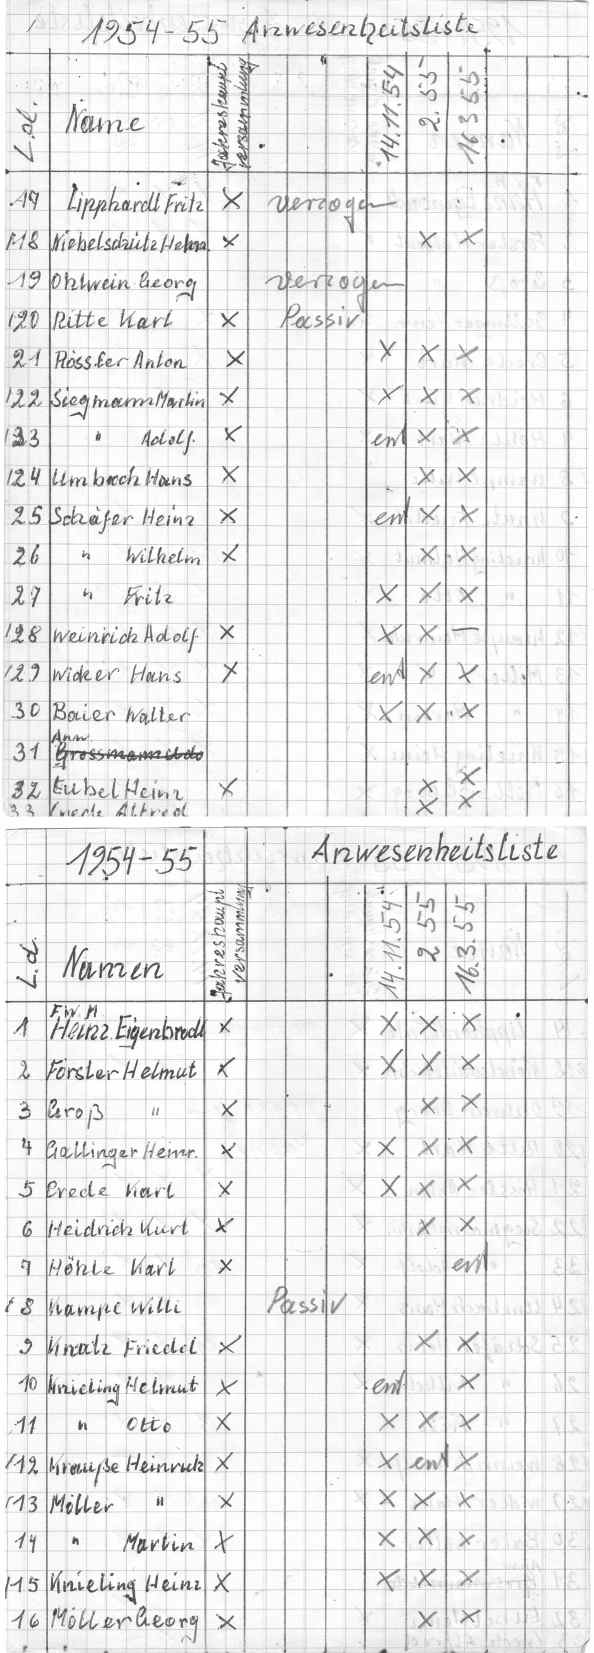 1954-55 Anwesenheitsliste
L.d. Name Jahreshaupt versammlung " 14.11.54 2.55 16 3 55
17 Lipphardt Fritz X verzogen
18 Niebelschütz Helm. X X X
19 Ohlwein Georg verzogen
20 Ritte Karl X Passiv
21 Rössler Anton X X X X
22 Siegmann Martin X X X X
23 " Adolf X ent X X
24 Umbach Hans X X X
25 Schäfer Heinz X ent X X
26 " Wilhelm X X X
27 " Fritz X X X
28 Weinrich Adolf X X X –
29 Wicker Hans X ent X X
30 Baier Walter X X X
31 Grossmann Udo
32 Eubel Heinz X X X
33 Crede Alfred X X
1954-55 Anwesenheitsliste
L.d. Namen Jahreshaupt versammlung 14.11.54 2 55 16.3.55
F.W.M
1 Heinz Eigenbrodt X X X X
2 Förster Helmut X X X X
3 Groß " X X X
4 Gallinger Heinr. X X X X
5 Crede Karl X X X X
6 Heidrich Kurt X X X
7 Höhle Karl X ent
8 Kampe Willi Passiv
9 Knatz Friedel X X X
10 Knieling Helmut X ent X
11 " Otto X X X X
12 Krauße Heinrich X X ent X
13 Möller " X X X X
14 " Martin X X X X
15 Knieling Heinz X X X X
16 Möller Georg X X X